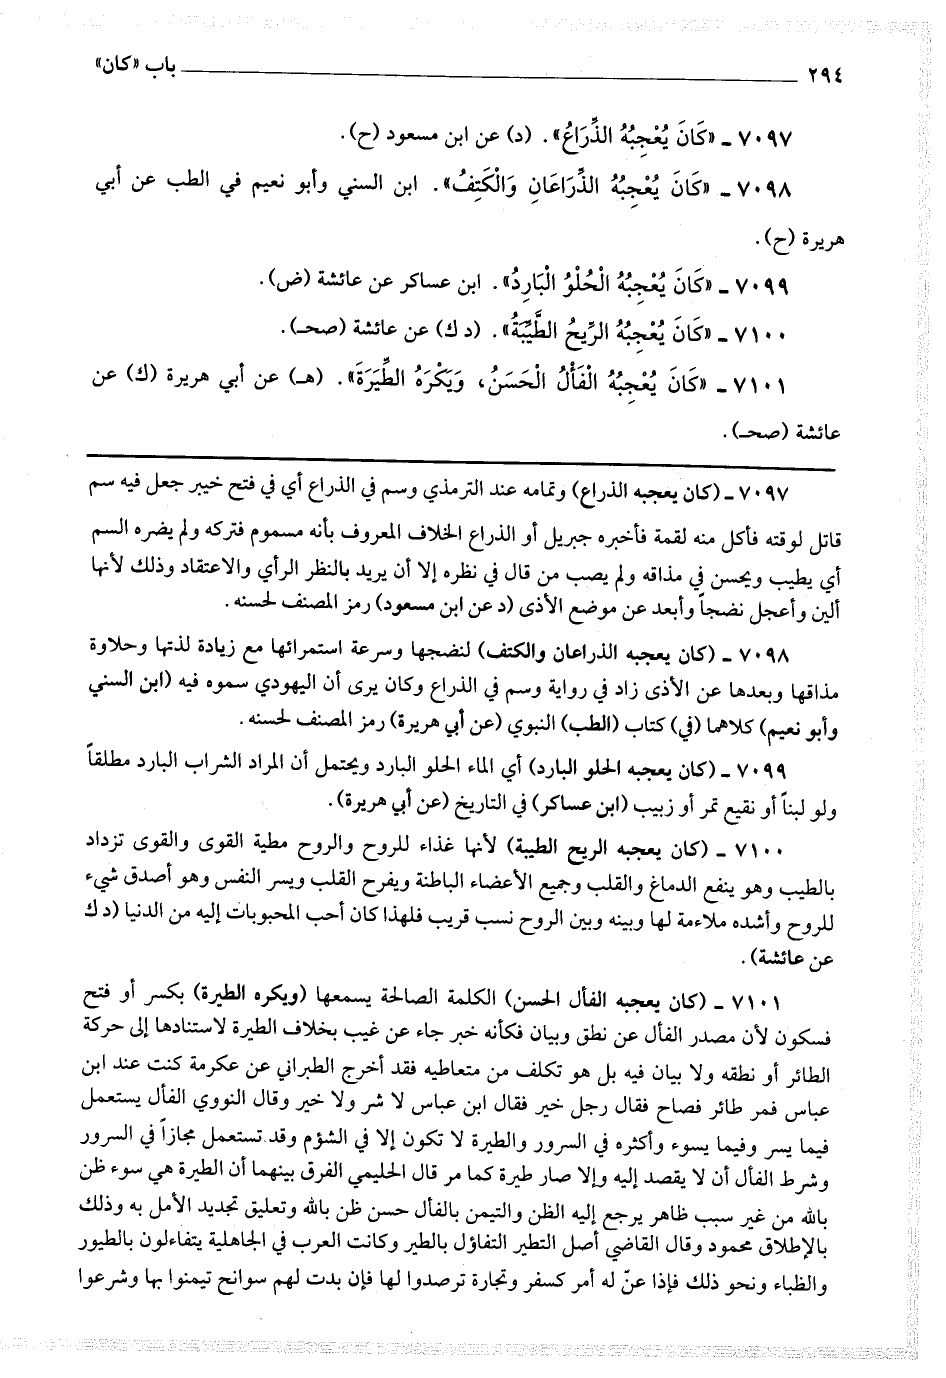 ٢٩٤ باب «كان»
٧٠٩٧ ـ «كَانَ يُعْجِبُهُ الذِّرَاعُ». (د) عن ابن مسعود (ح).
٧٠٩٨ ـ «كَانَ يُعْجِبُهُ الذِّرَاعَانِ وَالْكَتِفُ». ابن السني وأبو نعيم في الطب عن أبي
هريرة (ح).
٧٠٩٩ ـ «كَانَ يُعْجِبُهُ الْحُلْوُ الْبَارِدُ». ابن عساكر عن عائشة (ض).
٧١٠٠ ـ «كَانَ يُعْجِبُهُ الرِّيحُ الطَّيِّبَةُ». (د ك) عن عائشة (صحـ).
٧١٠١ ـ «كَانَ يُعْجِبُهُ الْفَأْلُ الْحَسَنُ، وَيَكْرَهُ الطِّيَرَةَ». (هـ) عن أبي هريرة (ك) عن
عائشة (صحـ).
٧٠٩٧ ـ (كان يعجبه الذراع) وتمامه عند الترمذي وسم في الذراع أي في فتح خيبر جعل فيه سم
قاتل لوقته فأكل منه لقمة فأخبره جبريل أو الذراع الخلاف المعروف بأنه مسموم فتركه ولم يضره السم
أي يطيب ويحسن في مذاقه ولم يصب من قال في نظره إلا أن يريد بالنظر الرأي والاعتقاد وذلك لأنها
ألين وأعجل نضجاً وأبعد عن موضع الأذى (د عن ابن مسعود) رمز المصنف لحسنه.
٧٠٩٨ ـ (كان يعجبه الذراعان والكتف) لنضجها وسرعة استمرائها مع زيادة لذتها وحلاوة
مذاقها وبعدها عن الأذى زاد في رواية وسم في الذراع وكان يرى أن اليهودي سموه فيه (ابن السني
وأبو نعيم) كلاهما (في) كتاب (الطب) النبوي (عن أبي هريرة) رمز المصنف لحسنه.
٧٠٩٩ ـ (كان يعجبه الحلو البارد) أي الماء الحلو البارد ويحتمل أن المراد الشراب البارد مطلقاً
ولو لبناً أو نقيع تمر أو زبيب (ابن عساكر) في التاريخ (عن أبي هريرة).
٧١٠٠ ـ (كان يعجبه الريح الطيبة) لأنها غذاء للروح والروح مطية القوى والقوى تزداد
بالطيب وهو ينفع الدماغ والقلب وجميع الأعضاء الباطنة ويفرح القلب ويسر النفس وهو أصدق شيء
للروح وأشده ملاءمة لها وبينه وبين الروح نسب قريب فلهذا كان أحب المحبوبات إليه من الدنيا (د ك
عن عائشة).
٧١٠١ ـ (كان يعجبه الفأل الحسن) الكلمة الصالحة يسمعها (ويكره الطيرة) بكسر أو فتح
فسكون لأن مصدر الفأل عن نطق وبيان فكأنه خبر جاء عن غيب بخلاف الطيرة لاستنادها إلى حركة
الطائر أو نطقه ولا بيان فيه بل هو تكلف من متعاطيه فقد أخرج الطبراني عن عكرمة كنت عند ابن
عباس فمر طائر فصاح فقال رجل خير فقال ابن عباس لا شر ولا خير وقال النووي الفأل يستعمل
فيما يسر وفيما يسوء وأكثره في السرور والطيرة لا تكون إلا في الشؤم وقد تستعمل مجازاً في السرور
وشرط الفأل أن لا يقصد إليه وإلا صار طيرة كما مر قال الحليمي الفرق بينهما أن الطيرة هي سوء ظن
بالله من غير سبب ظاهر يرجع إليه الظن والتيمن بالفأل حسن ظن بالله وتعليق تجديد الأمل به وذلك
بالإطلاق محمود وقال القاضي أصل التطير التفاؤل بالطير وكانت العرب في الجاهلية يتفاءلون بالطيور
والظباء ونحو ذلك فإذا عنّ له أمر كسفر وتجارة ترصدوا لها فإن بدت لهم سوانح تيمنوا بها وشرعوا